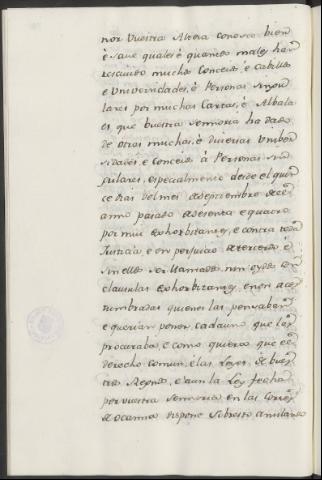 nor Vuestra Alteza conosce bien
è save quales è quantos males han
rescivido muchos Concexos è Cabildos
è Universidades, è Personas singu
lares por muchas Cartas, è Albala
es que vuestra señoria ha dado
de otros muchos, è diversas Univer
sidades, è Concexos à Personas sin
gulares, especialmente desde el quin
ce dias del mes de septiembre de el
año pasado de sesenta e quatro
por mui exhorbitantes, è contra toda
Justicia, è en perjuicio de terceros è
sin ellos ser llamados, nin oydos con
clausulas exhorbitantes, e non acos
tumbradas quienes las pensaban
e querian poner, cada uno que las
procuraba, è como quiera que el
derecho comun, è las Leyes de vues
tros Reynos, è aun la Ley fecha
por vuestra señoria en las Cortes
de Ocaña dispone sobresto anulando